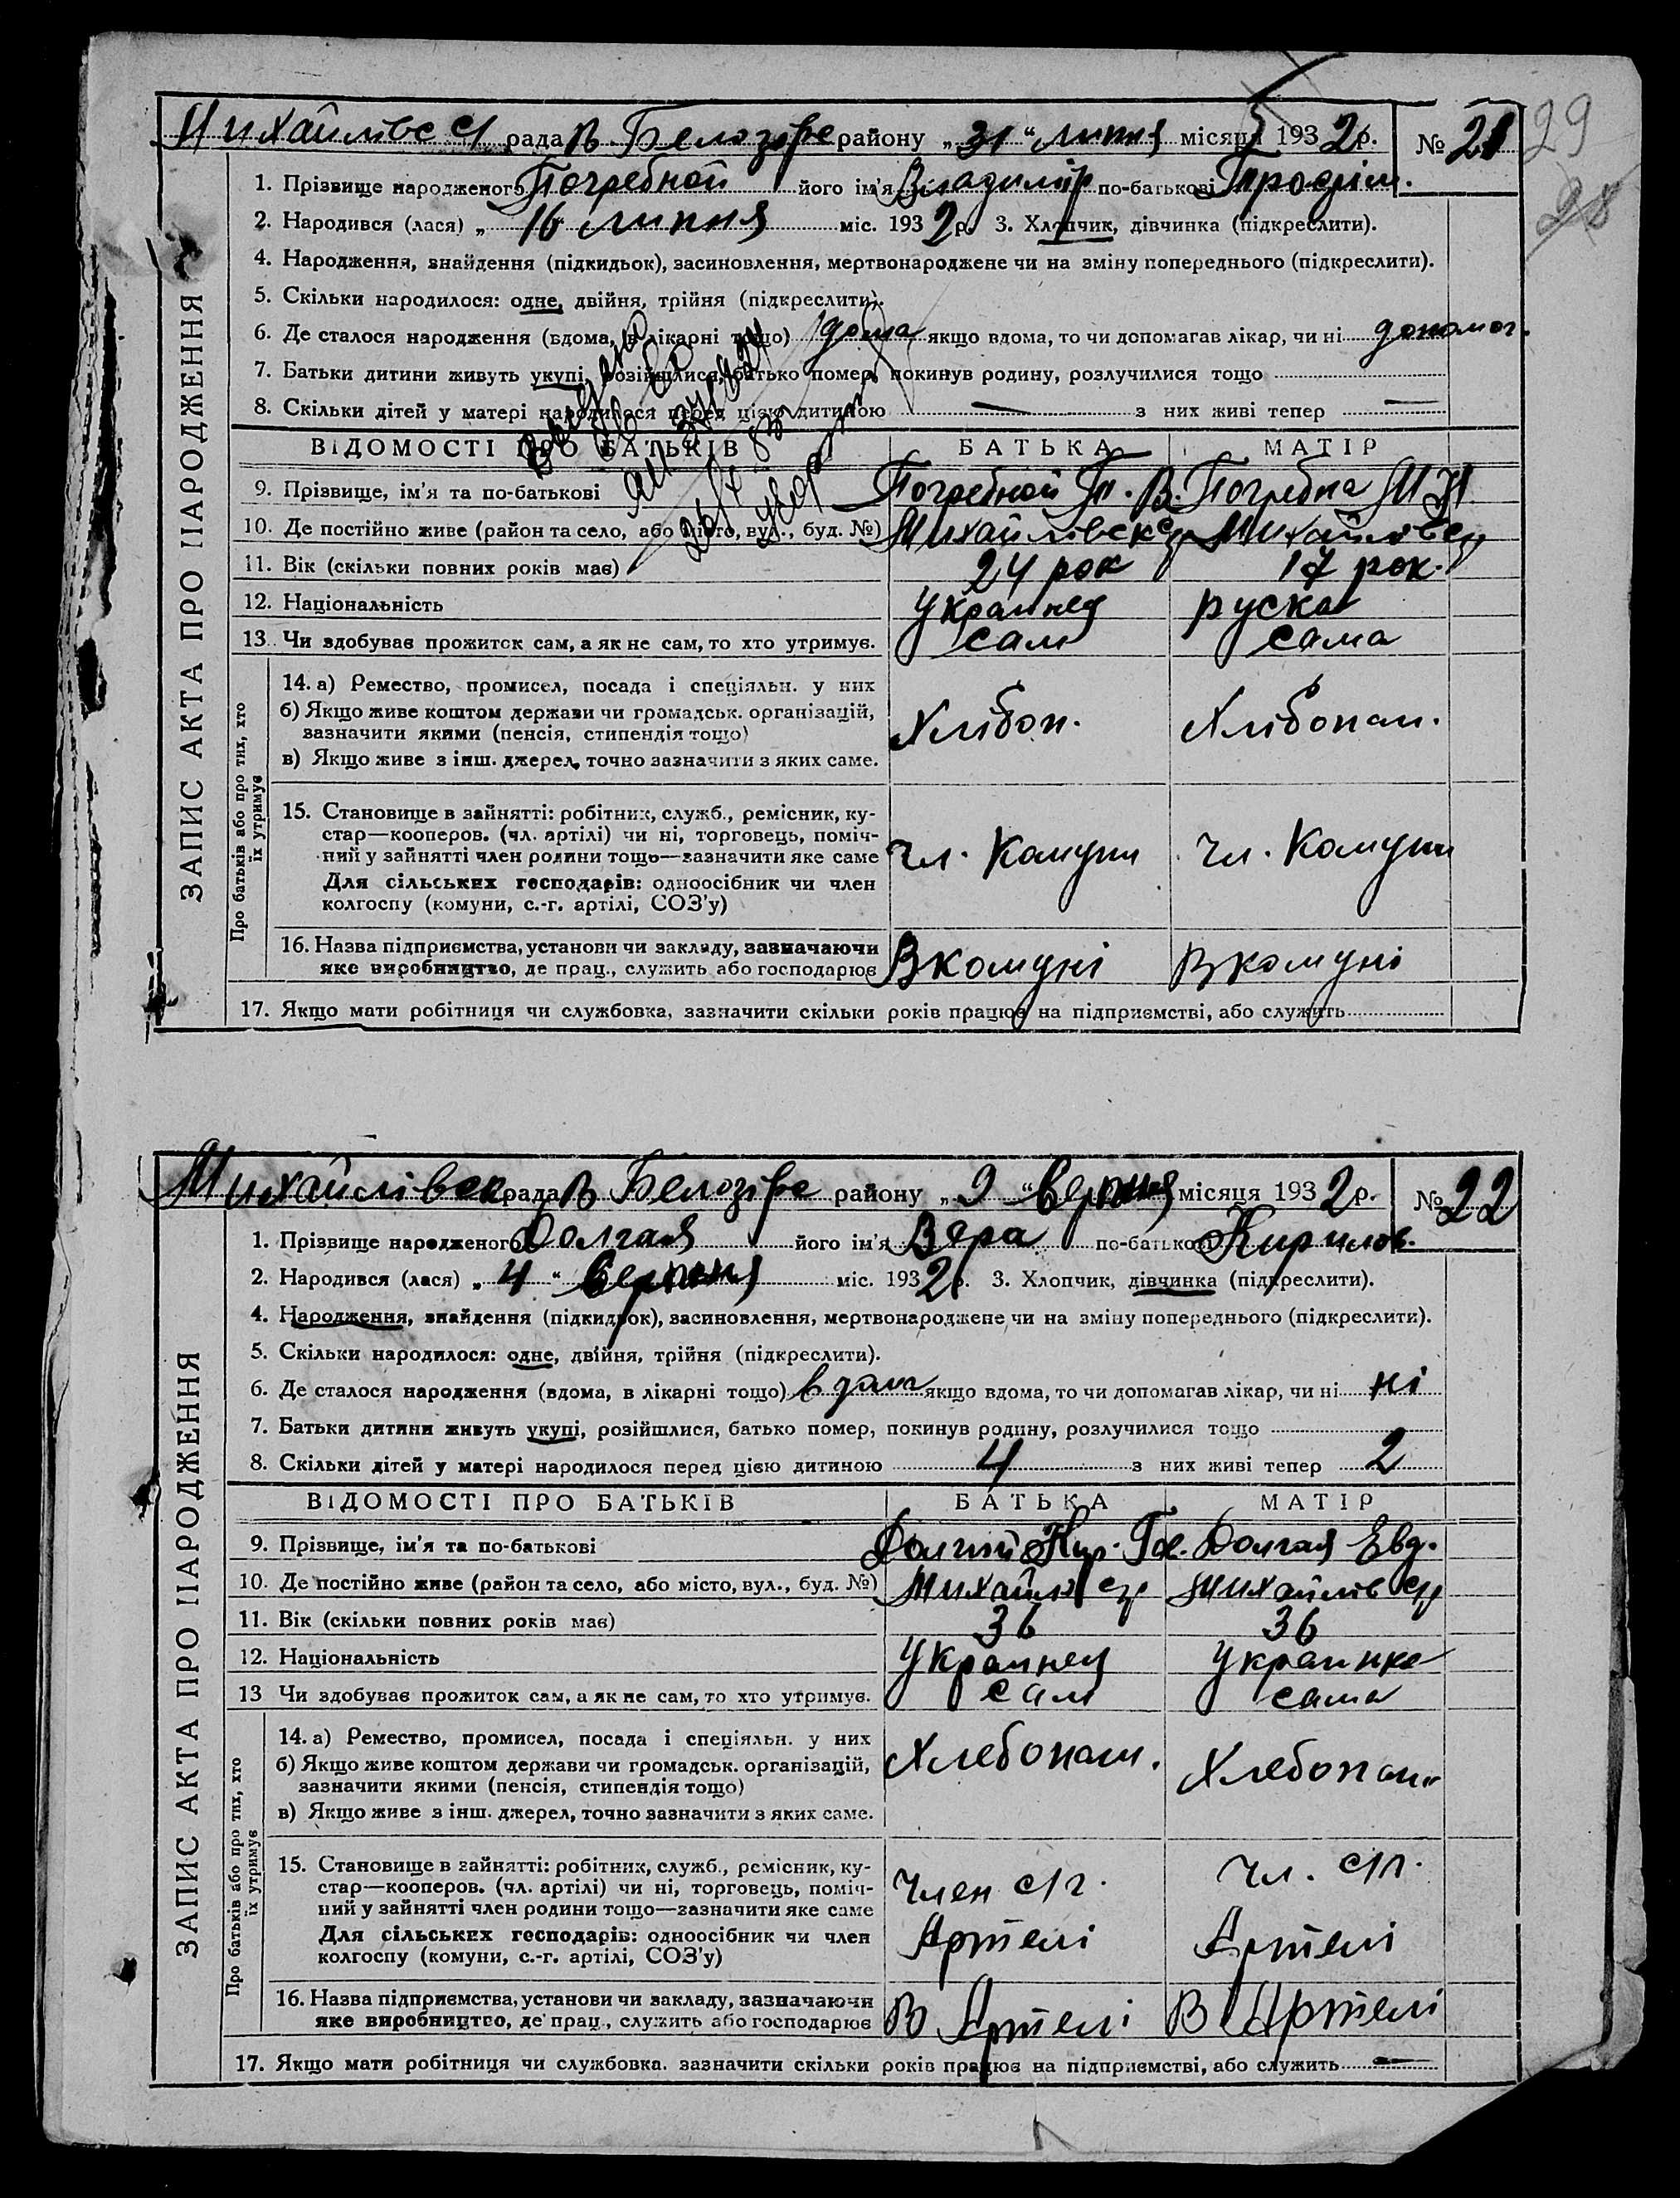 Михайлівс с/ рада В Белозірс району „31“ липня місяця 1932р. № 21
29
28
1. Прізвище народженого Погребной його ім'я Владимір по-батькові Трофім.
2. Народився (лася) „16 липня міс. 1932р. 3. Хлопчик, дівчинка (підкреслити).
4. Народження, знайдення (підкидьок), засиновлення, мертвонароджене чи на зміну попереднього (підкреслити).
5. Скільки народилося: одне, двійня, трійня (підкреслити).
6. Де сталося народження (вдома, в лікарні тощо) дома якщо вдома, то чи допомагав лікар, чи ні допомог.
7. Батьки дитини живуть укупі, розійшлися, батько помер, покинув родину, розлучилися тощо
8. Скільки дітей у матері народилося перед цією дитиною — з них живі тепер —
ВІДОМОСТІ ПРО БАТЬКІВ БАТЬКА МАТІР
9. Прізвище, ім'я та по-батькові Погребной Т. В. Погребна М
10. Де постійно живе (район та село, або місто, вул., буд. №) Михайлівск Михайлівс
11. Вік (скільки повних років має) 24 рок 17 рок.
12. Національність Украинец руска
13. Чи здобуває прожиток сам, а як не сам, то хто утримує. сам сама
14. а) Ремество, промисел, посада і спеціяльн. у них
б) Якщо живе коштом держави чи громадськ. організацій,
зазначити якими (пенсія, стипендія тощо) Хлібоп. Хлібопаш.
в) Якщо живе з інш. джерел, точно зазначити з яких саме.
15. Становище в зайнятті: робітник, служб., ремісник, ку-
стар—кооперов. (чл. артілі) чи ні, торговець, поміч-
ний у зайнятті член родини тощо—зазначити яке саме чл. Комуни чл. Комуни
Для сільських господарів: одноосібник чи член
колгоспу (комуни, с.-г. артілі, СОЗ'у)
16. Назва підприємства, установи чи закладу, зазначаючи
яке виробництво, де прац., служить або господарює В комуні В комуні
17. Якщо мати робітниця чи службовка, зазначити скільки років працює на підприємстві, або служить
ЗАПИС АКТА ПРО НАРОДЖЕННЯ
Про батьків або про тих, хто
їх утримує
Михайлівск рада В Белозірс району „9“ верпня місяця 1932р. № 22
1. Прізвище народженого Долгая його ім'я Вера по-батькові Кирилов.
2. Народився (лася) „4“ верпня міс. 1932р. 3. Хлопчик, дівчинка (підкреслити).
4. Народження, знайдення (підкидьок), засиновлення, мертвонароджене чи на зміну попереднього (підкреслити).
5. Скільки народилося: одне, двійня, трійня (підкреслити).
6. Де сталося народження (вдома, в лікарні тощо) в дома якщо вдома, то чи допомагав лікар, чи ні ні
7. Батьки дитини живуть укупі, розійшлися, батько помер, покинув родину, розлучилися тощо
8. Скільки дітей у матері народилося перед цією дитиною 4 з них живі тепер 2
ВІДОМОСТІ ПРО БАТЬКІВ БАТЬКА МАТІР
9. Прізвище, ім'я та по-батькові Долгий Кир. Долгая Евд.
10. Де постійно живе (район та село, або місто, вул., буд. №) Михайлів Михайлів
11. Вік (скільки повних років має) 36 36
12. Національність Украинец украинка
13 Чи здобуває прожиток сам, а як не сам, то хто утримує. сам сама
14. а) Ремество, промисел, посада і спеціяльн. у них
б) Якщо живе коштом держави чи громадськ. організацій,
зазначити якими (пенсія, стипендія тощо) Хлебопаш. Хлебопаш
в) Якщо живе з інш. джерел, точно зазначити з яких саме.
15. Становище в зайнятті: робітник, служб., ремісник, ку-
стар—кооперов. (чл. артілі) чи ні, торговець, поміч- Член с/г. чл. с/г.
ний у зайнятті член родини тощо—зазначити яке саме
Для сільських господарів: одноосібник чи член Артелі Артелі
колгоспу (комуни, с.-г. артілі, СОЗ'у)
16. Назва підприємства, установи чи закладу, зазначаючи
яке виробництво, де прац., служить або господарює В Артелі В Артелі
17. Якщо мати робітниця чи службовка. зазначити скільки років працює на підприємстві, або служить —
ЗАПИС АКТА ПРО НАРОДЖЕННЯ
Про батьків або про тих, хто
їх утримує